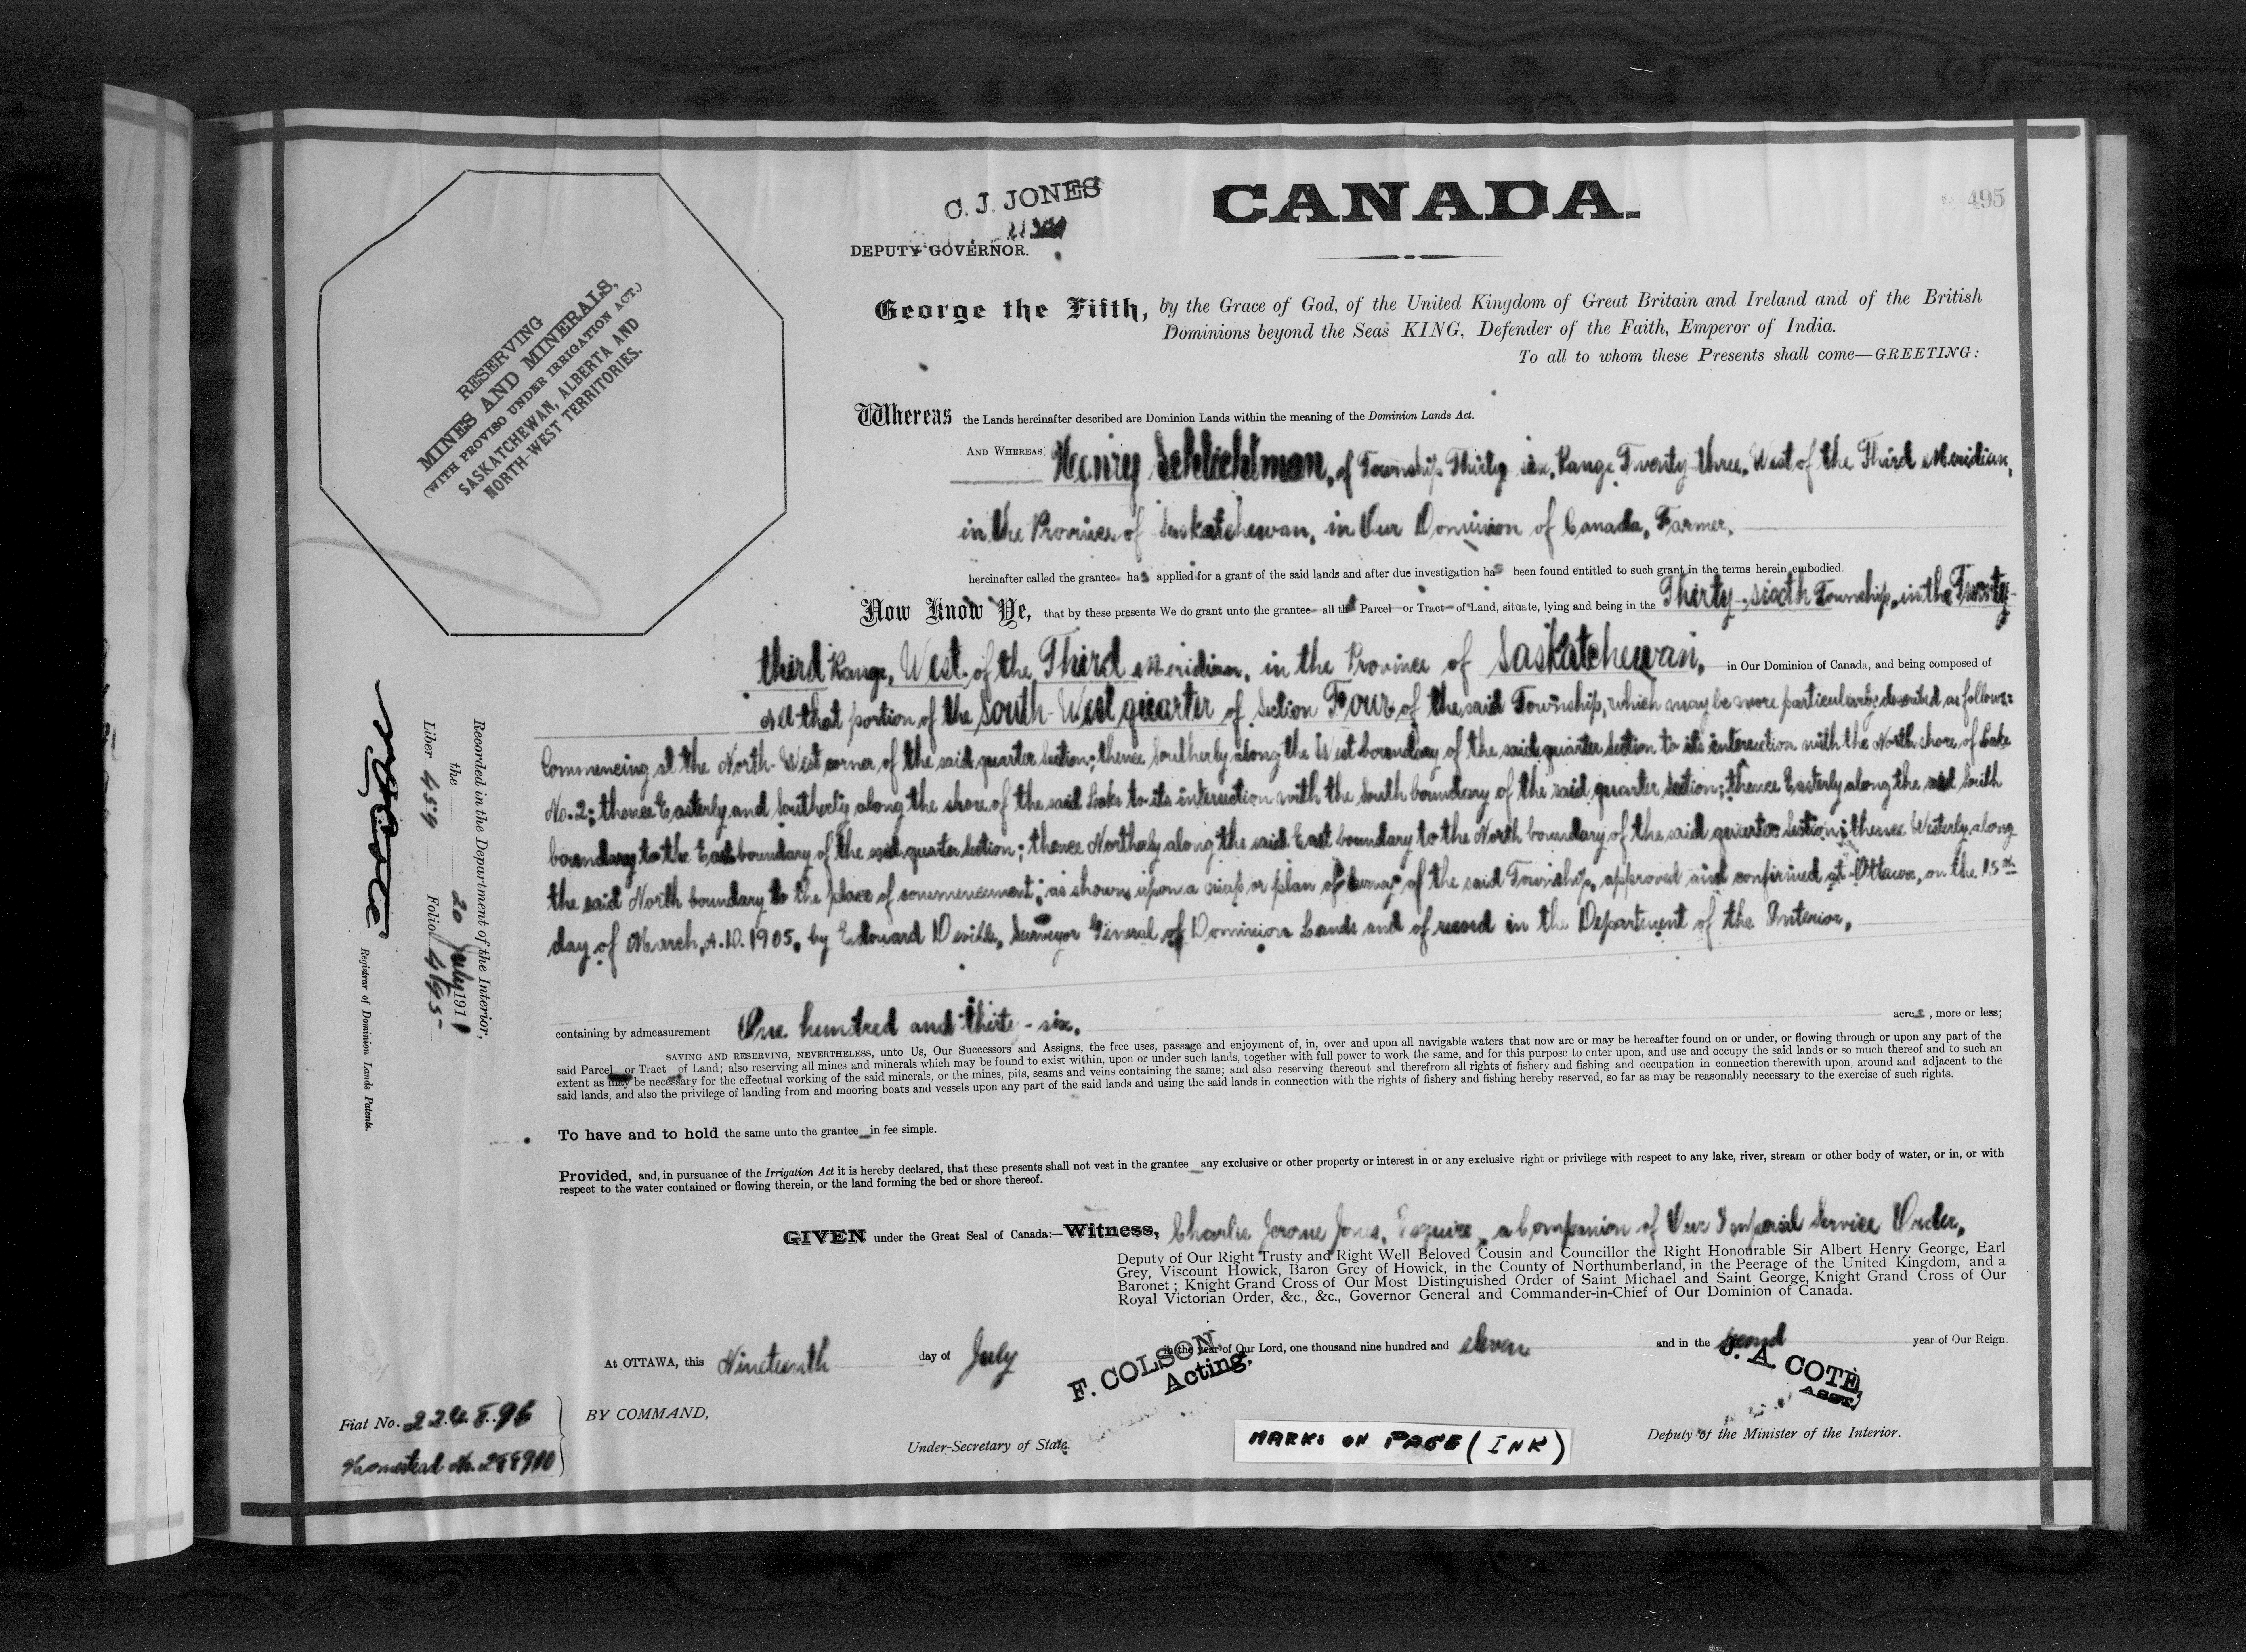 C. J. JONES
DEPUTY GOVERNOR.
CANADA.
495
RESERVING
MINES AND MINERALS,
(WITH PROVISO UNDER IRRIGATION ACT.)
SASKATCHEWAN, ALBERTA AND
NORTH-WEST TERRITORIES.
George the Fifth, by the Grace of God, of the United Kingdom of Great Britain and Ireland and of the British
Dominions beyond the Seas KING, Defender of the Faith, Emperor of India.
To all to whom these Presents shall come—GREETING:
Whereas the Lands hereinafter described are Dominion Lands within the meaning of the Dominion Lands Act.
AND WHEREAS Henry Schlichtman, of Township Thirty six, Range Twenty-three, West of the Third Meridian,
in the Province of Saskatchewan, in Our Dominion of Canada, Farmer,
hereinafter called the grantee has applied for a grant of the said lands and after due investigation has been found entitled to such grant in the terms herein embodied.
Now Know Ye, that by these presents We do grant unto the grantee all that Parcel or Tract of Land, situate, lying and being in the Thirty-sixth Township, in the Twenty-
third Range, West of the Third Meridian, in the Province of Saskatchewan, in Our Dominion of Canada, and being composed of
All that portion of the South-West quarter of Section Four of the said Township, which may be more particularly described as follows:
Commencing at the North-West corner of the said quarter Section; thence Southerly along the West boundary of the said quarter Section to its intersection with the North shore of Lake
No. 2; thence Easterly and Southerly along the shore of the said Lake to its intersection with the South boundary of the said quarter Section; thence Easterly along the said South
boundary to the East boundary of the said quarter Section; thence Northerly along the said East boundary to the North boundary of the said quarter Section; thence Westerly along
the said North boundary to the place of commencement; as shown upon a map or plan of survey of the said Township, approved and confirmed at Ottawa, on the 15th
day of March, A.D. 1905, by Edouard Deville, Surveyor General of Dominion Lands and of record in the Department of the Interior,
containing by admeasurement One hundred and thirty-six, acres, more or less;
SAVING AND RESERVING, NEVERTHELESS, unto Us, Our Successors and Assigns, the free uses, passage and enjoyment of, in, over and upon all navigable waters that now are or may be hereafter found on or under, or flowing through or upon any part of the
said Parcel or Tract of Land; also reserving all mines and minerals which may be found to exist within, upon or under such lands, together with full power to work the same, and for this purpose to enter upon, and use and occupy the said lands or so much thereof and to such an
extent as may be necessary for the effectual working of the said minerals, or the mines, pits, seams and veins containing the same; and also reserving thereout and therefrom all rights of fishery and fishing and occupation in connection therewith upon, around and adjacent to the
said lands, and also the privilege of landing from and mooring boats and vessels upon any part of the said lands and using the said lands in connection with the rights of fishery and fishing hereby reserved, so far as may be reasonably necessary to the exercise of such rights.
To have and to hold the same unto the grantee in fee simple.
Provided, and, in pursuance of the Irrigation Act it is hereby declared, that these presents shall not vest in the grantee any exclusive or other property or interest in or any exclusive right or privilege with respect to any lake, river, stream or other body of water, or in, or with
respect to the water contained or flowing therein, or the land forming the bed or shore thereof.
GIVEN under the Great Seal of Canada:—Witness, Charles Jerome Jones, Esquire, a Companion of Our Imperial Service Order,
Deputy of Our Right Trusty and Right Well Beloved Cousin and Councillor the Right Honourable Sir Albert Henry George, Earl
Grey, Viscount Howick, Baron Grey of Howick, in the County of Northumberland, in the Peerage of the United Kingdom, and a
Baronet; Knight Grand Cross of Our Most Distinguished Order of Saint Michael and Saint George, Knight Grand Cross of Our
Royal Victorian Order, &c., &c., Governor General and Commander-in-Chief of Our Dominion of Canada.
At OTTAWA, this Nineteenth day of July in the year of Our Lord, one thousand nine hundred and eleven and in the second year of Our Reign.
F. COLSON,
Acting.
J. A. COTÉ,
ASST.
BY COMMAND,
Under-Secretary of State.
Deputy of the Minister of the Interior.
MARKS ON PAGE (INK)
Fiat No. 224896
Homestead No. 288910
Recorded in the Department of the Interior,
the 20 July 1911
Liber 459 Folio 495
Registrar of Dominion Lands Patents.